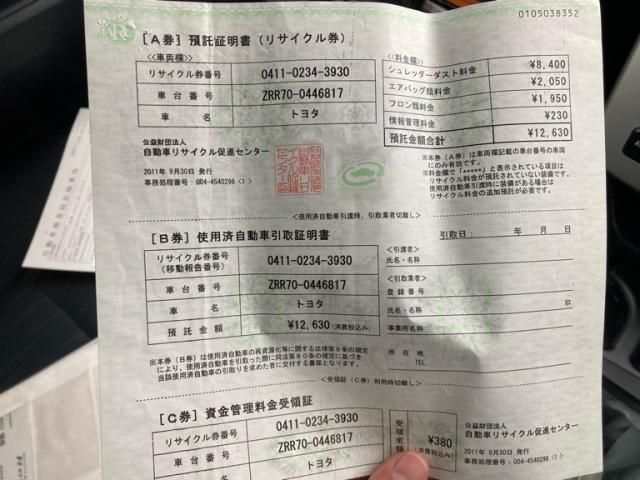 0105038352
[A券] 預託証明書(リサイクル券)
<<車両欄>>
リサイクル券番号 0411-0234-3930
車台番号 ZRR70-0446817
車名 トヨタ
<<料金欄>>
シュレッダーダスト料金 ¥8,400
エアバッグ類料金 ¥2,050
フロン類料金 ¥1,950
情報管理料金 ¥230
預託金額合計 ¥12,630
公益財団法人
自動車リサイクル促進センター
2011年 9月30日 発行
事務処理番号:004-4540298〈1〉
※本券(A券)は車両欄記載の車台番号の車両
にのみ有効です。
※料金欄で「*****」と表示されている項目は
リサイクル料金が預託されていない装備です。
使用済自動車引渡時に装備がある場合は
リサイクル料金の追加預託が必要です。
<使用済自動車引渡時、引取業者切離し>
[B券] 使用済自動車引取証明書
引取日: 年 月 日
リサイクル券番号
(移動報告番号) 0411-0234-3930
車台番号 ZRR70-0446817
車名 トヨタ
預託金額 ¥12,630(消費税込み)
<引渡者>
氏名・名称
<引取業者>
登録番号
氏名・名称 印
事業所名称
所在地
TEL
※本券(B券)は使用済自動車の再資源化等に関する法律第9条の規定
により、使用済自動車を引取った際に同法第80条の規定に基づき
当該使用済自動車の引取りを求めた者に交付する書面となります。
<受領証(C券)利用時切離し>
[C券] 資金管理料金受領証
リサイクル券番号 0411-0234-3930
車台番号 ZRR70-0446817
車名 トヨタ
受領金額 ¥380
(消費税込み)
公益財団法人
自動車リサイクル促進センター
2011年 9月30日 発行
事務処理番号:004-4540298〈1〉